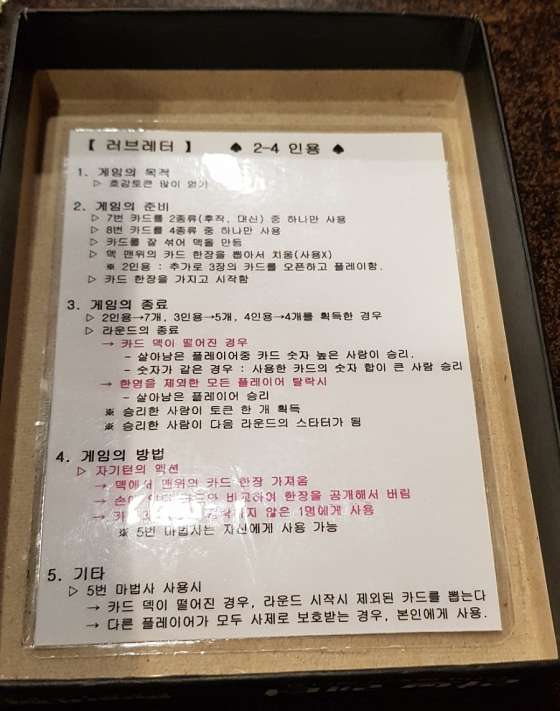 【 러브레터 】 ♠ 2-4 인용 ♠
1. 게임의 목적
▷ 호감토큰 많이 얻기
2. 게임의 준비
▷ 7번 카드를 2종류(후작, 대신) 중 하나만 사용
▷ 8번 카드를 4종류 중 하나만 사용
▷ 카드를 잘 섞어 덱을 만듬
▷ 덱 맨위의 카드 한장을 뽑아서 치움(사용X)
※ 2인용 : 추가로 3장의 카드를 오픈하고 플레이함.
▷ 카드 한장을 가지고 시작함
3. 게임의 종료
▷ 2인용→7개, 3인용→5개, 4인용→4개를 획득한 경우
▷ 라운드의 종료
→ 카드 덱이 떨어진 경우
- 살아남은 플레이어중 카드 숫자 높은 사람이 승리.
- 숫자가 같은 경우 : 사용한 카드의 숫자 합이 큰 사람 승리
→ 한명을 제외한 모든 플레이어 탈락시
- 살아남은 플레이어 승리
※ 승리한 사람이 토큰 한 개 획득
※ 승리한 사람이 다음 라운드의 스타터가 됨
4. 게임의 방법
▷ 자기턴의 액션
→ 덱에서 맨위의 카드 한장 가져옴
→ 카드와 비교하여 한장을 공개해서 버림
→ 않은 1명에게 사용
※ 5번 마법사는 자신에게 사용 가능
5. 기타
▷ 5번 마법사 사용시
→ 카드 덱이 떨어진 경우, 라운드 시작시 제외된 카드를 뽑는다
→ 다른 플레이어가 모두 사제로 보호받는 경우, 본인에게 사용.